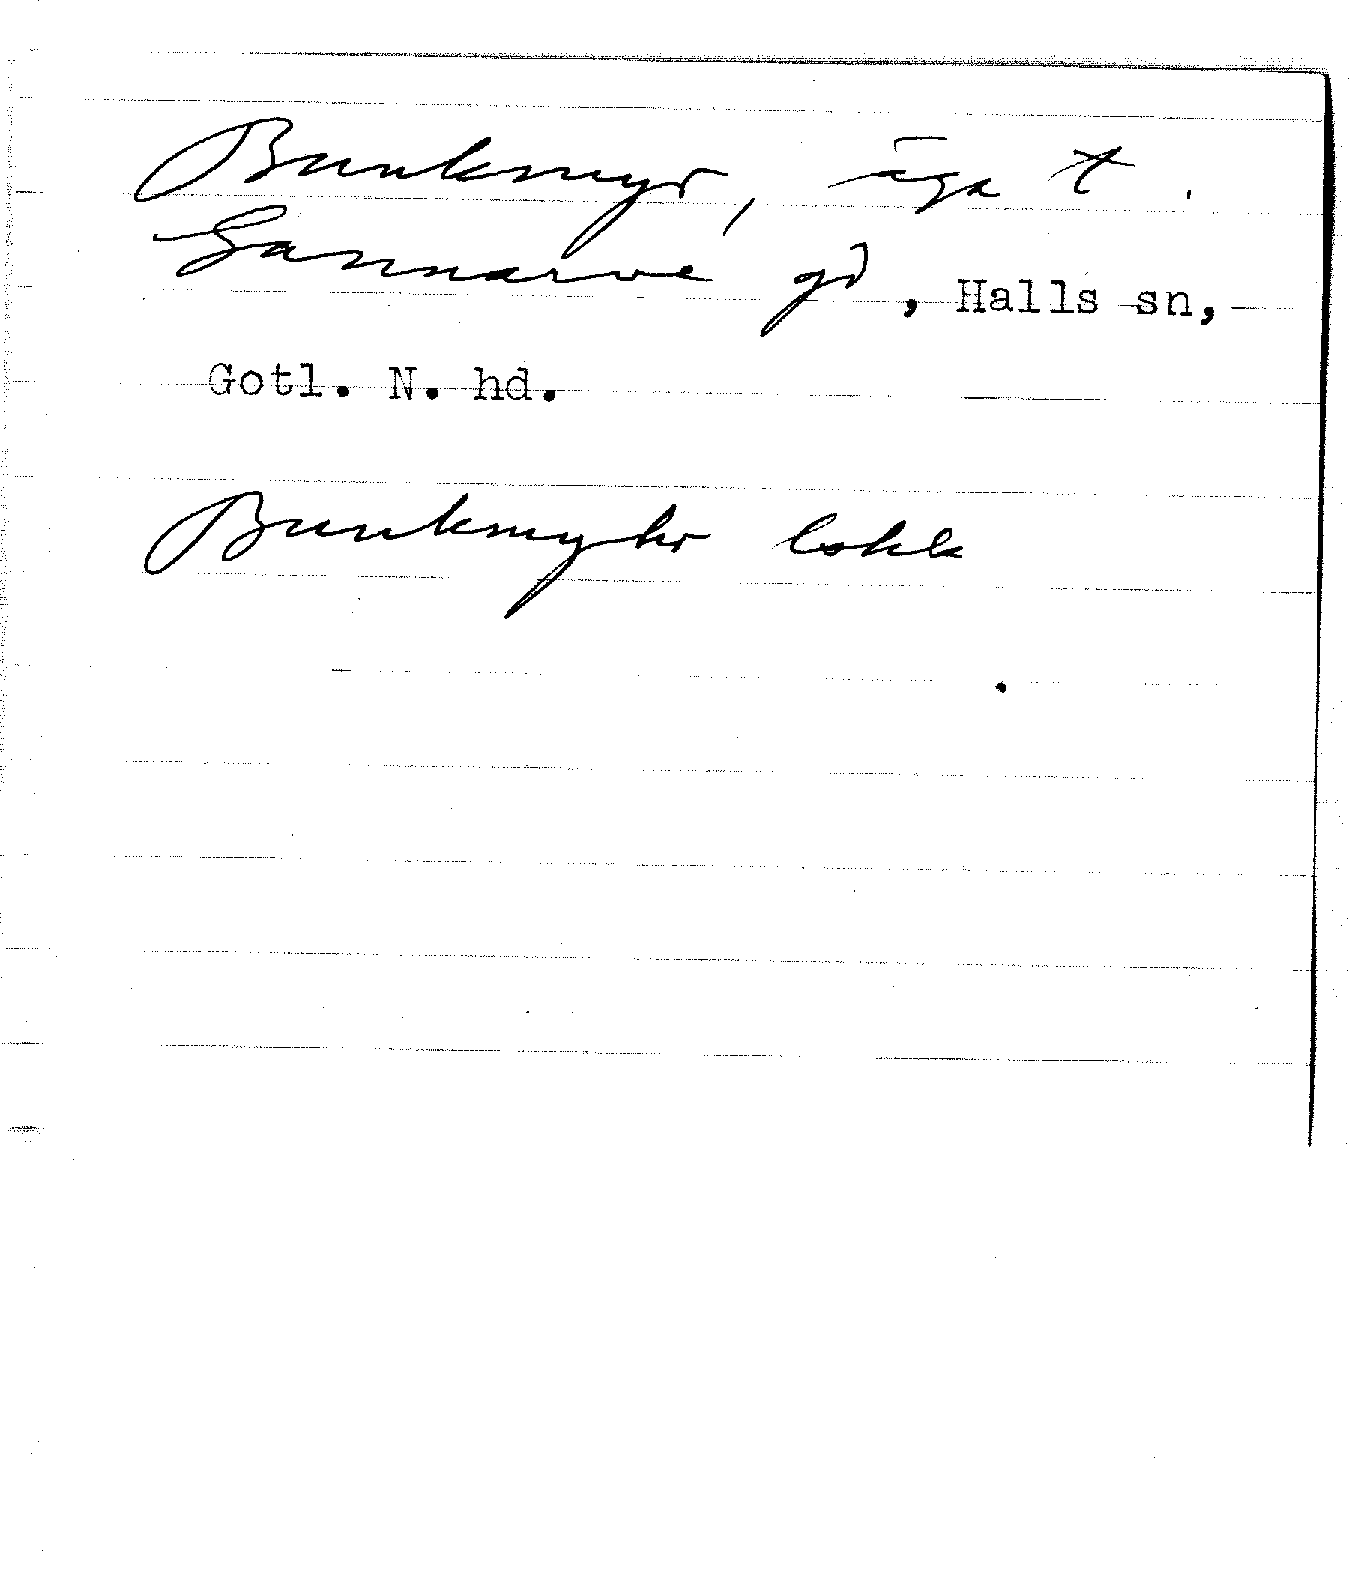 Bunkmyr, äga t.
Gannarve gd, Halls sn,
Gotl. N. hd.
Bunkmyhr